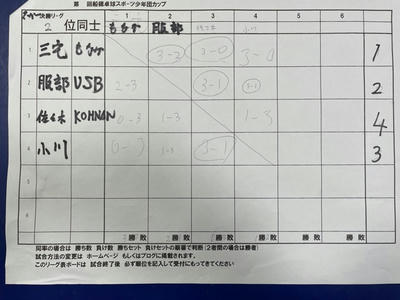 第 回船橋卓球スポーツ少年団カップ
決勝リーグ
2 位同士 もなか 服部
1 2 3 4 5 6
1 三宅 もなか 3-2 3-0 3-0 1
2 服部 VSB 2-3 3-1 3-1 2
3 佐々木 KOHNAN 0-3 1-3 1-3 4
4 小川 0-3 1-3 3-1 3
5
6
勝 敗 勝 敗 勝 敗 勝 敗 勝 敗 勝 敗
同率の場合は 勝ち数 負け数 勝ちセット 負けセットの順番で判断(2者間の場合は勝者)
試合方法の変更は ホームページ もしくはブログに掲載されます。
このリーグ表ボードは 試合終了後 必ず順位を記入して受付にもってきてください